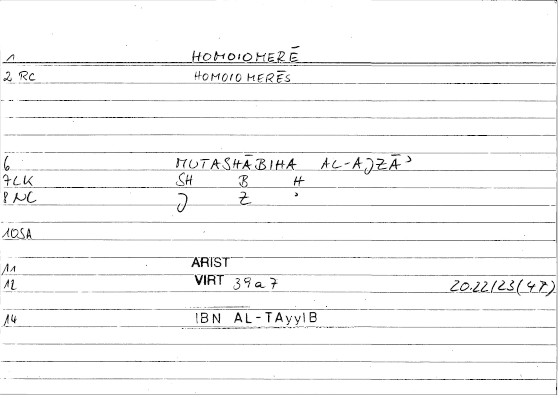 1 HOMOIOMERĒ
2 RC HOMOIOMERĒS
6 MUTASHĀBIHA AL-AJZĀʾ
7LK SH B H
8 NC J Z ʾ
10SA
11 ARIST
12 VIRT 39a7 20.22/23(4P)
14 IBN AL-TAyyIB